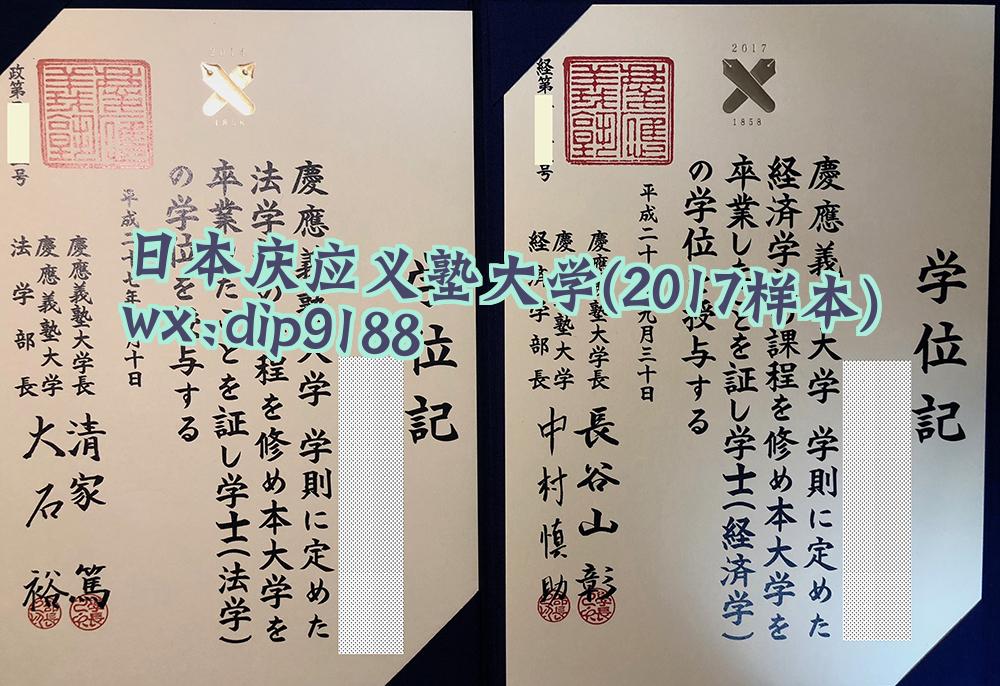 日本庆应义塾大学(2017样本)
wx:dip9188
学位記
慶應義塾大学 学則に定めた
法学の課程を修め本大学を
卒業したことを証し学士(法学)
の学位を与する
平成二十七年月十日
慶應義塾大学長 清家 篤
慶應義塾大学
法学部長 大石 裕
政第号
2014
1858
慶應義塾
学位記
慶應義大学 学則に定めた
経済学課程を修め本大学を
卒業したことを証し学士(経済学)
の学位授与する
平成二十九月三十日
慶應義塾大学長 長谷山 彰
慶應義塾大学
経済学部長 中村慎助
経第号
2017
1858
慶應義塾